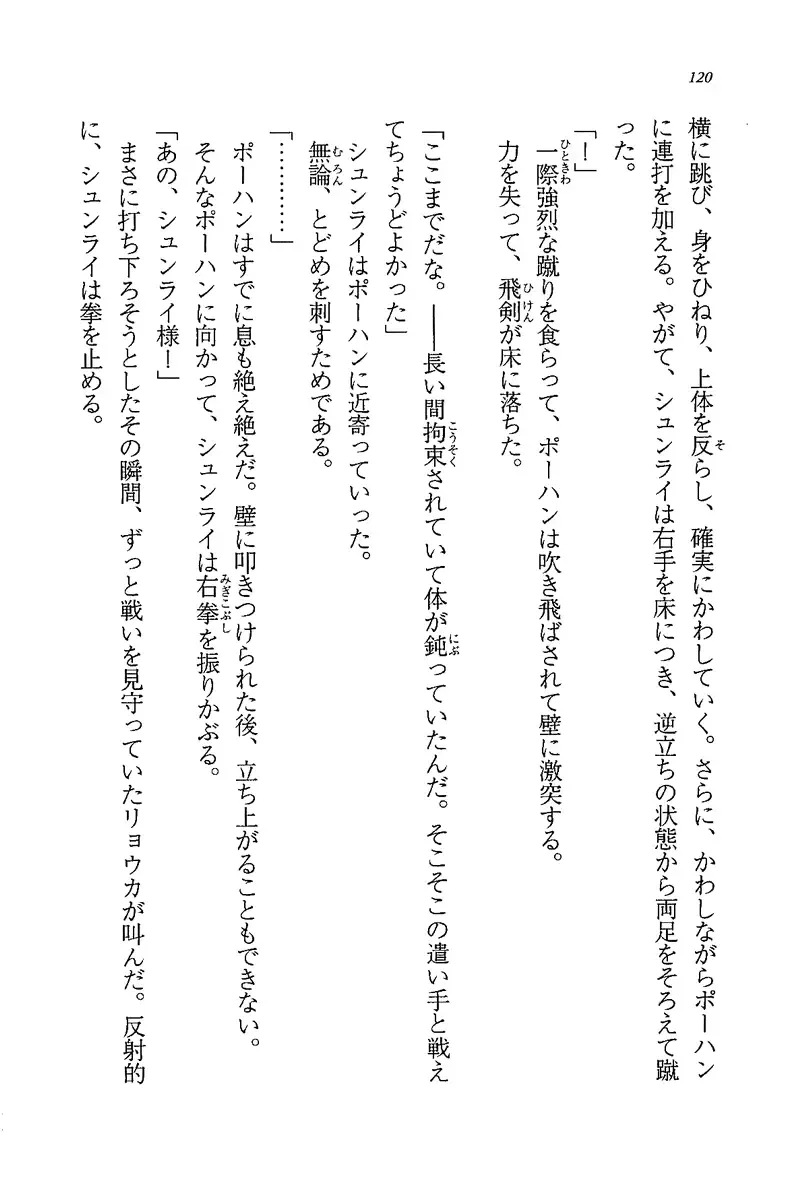 120
横に跳び、身をひねり、上体を反らし、確実にかわしていく。さらに、かわしながらポーハン
に連打を加える。やがて、シュンライは右手を床につき、逆立ちの状態から両足をそろえて蹴
った。
「！」
一際強烈な蹴りを食らって、ポーハンは吹き飛ばされて壁に激突する。
力を失って、飛剣が床に落ちた。
「ここまでだな。――長い間拘束されていて体が鈍っていたんだ。そこそこの遣い手と戦え
てちょうどよかった」
シュンライはポーハンに近寄っていった。
無論、とどめを刺すためである。
「…………」
ポーハンはすでに息も絶え絶えだ。壁に叩きつけられた後、立ち上がることもできない。
そんなポーハンに向かって、シュンライは右拳を振りかぶる。
「あの、シュンライ様！」
まさに打ち下ろそうとしたその瞬間、ずっと戦いを見守っていたリョウカが叫んだ。反射的
に、シュンライは拳を止める。